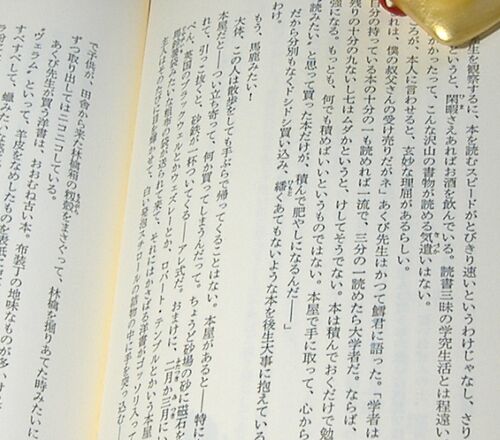 生を観察するに、本を読むスピードがとびきり速いというわけじゃなし、さり
というと、閑暇さえあればお酒を飲んでいる。読書三昧の学究生活とは程遠い
ろが、こんな沢山の書物が読める気遣いはない。
ろが、本人に言わせると、玄妙な理屈があるらしい。
されは、僕の叔父さんの受け売りだがネ」あくび先生はかつて鱈君に語った。「学者は
自分の持っている本の十分の一も読めれば一流で、三分の一読めたら大学者だ。ならば、
残りの十分の九ないし七はムダかというと、けしてそうでない。本は積んでおくだけで勉
強になる。もっとも、何でも積めばいいというものではない。本屋で手に取って、心から
読みたい〟と思って買った本だけが、積んで肥やしになるんだ――」
だから分別もなくドシドシ買い込み、繙くあてもないような本を後生大事に抱えている
だけ。
もう、馬鹿みたい！
大体、この人は散歩をしても手ぶらで帰ってくることはない。本屋があると――特に
本屋だと――ついふいっと立ち寄って、何か買ってしまうんだって。ちょうど砂場の砂に磁石を
れて、引っこ抜くと、砂鉄が一杯ついてくる――アレ式だ。おまけに、二月か三月に
べん、英国のブラックウェルとかウェズレーとか、ロバート・テンプルとかいう本屋
で子供が、田舎から来た林檎箱の籾殻をまさぐって、林檎を掘りあてた時みたいに
ずつ取り出してはニコニコしている。
あくび先生が買う洋書は、おおむね古い本。布装丁の地味なものが多い
〝ヴェラム〟といって、羊皮をなめしたものを表紙に